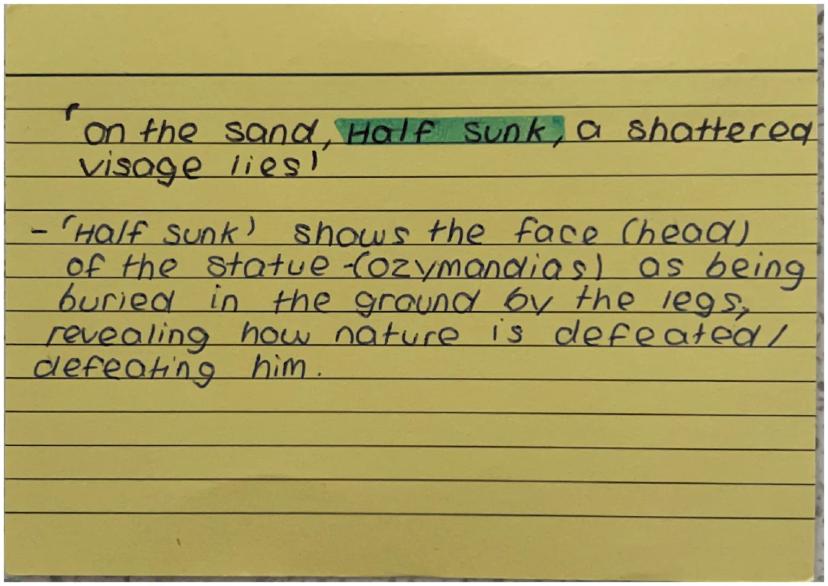 'on the sand, Half sunk, a shattered
visage lies'
- 'Half sunk' shows the face (head)
of the statue -(ozymandias) as being
buried in the ground by the legs,
revealing how nature is defeated/
defeating him.